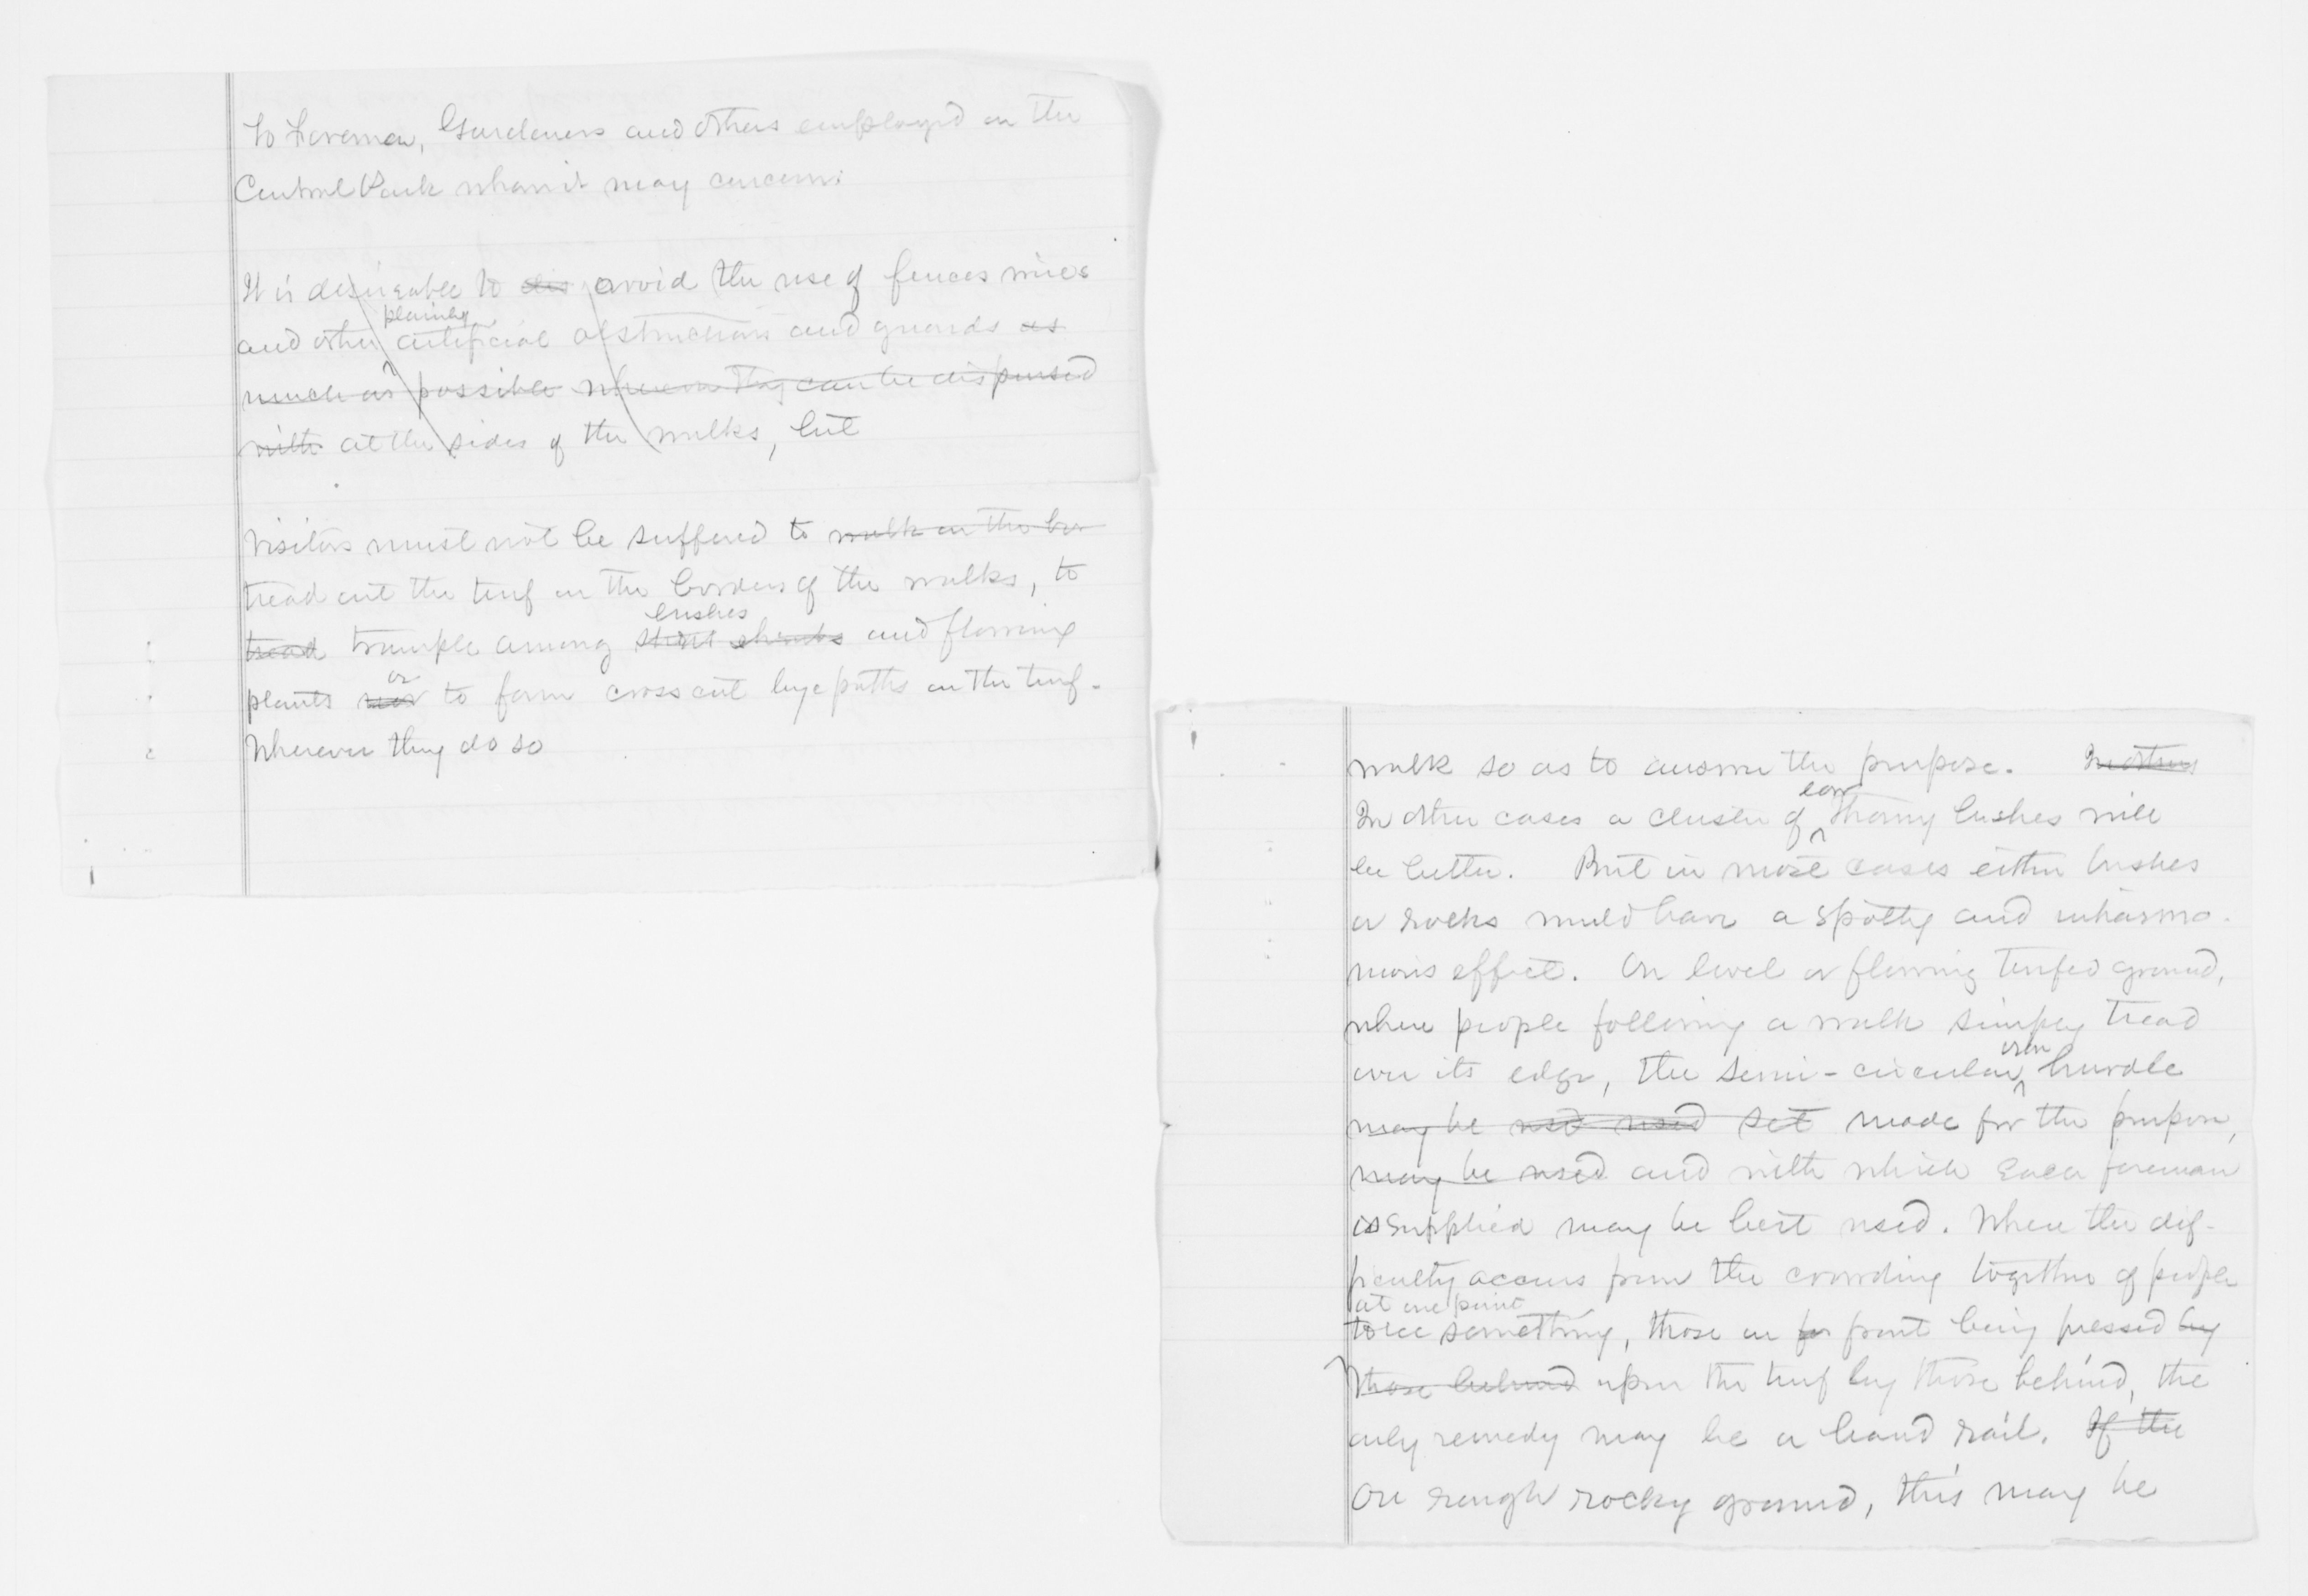 To Foremen, Gardeners and others employed on the
Central Park whom it may concern:
It is desireable to dis avoid the use of fences wires
plainly
and other artificial obstructions and guards as
much as possible wherever they can be dispensed
with at the sides of the walks, but
Visitors must not be suffered to walk on the bor
tread out the turf on the borders of the walks, to
bushes
tread trample among shrubs and flowering
or
plants nor to form cross cut bye paths on the turf.
Wherever they do so
walk so as to answer the purpose. In others
low
In other cases a cluster of thorny bushes will
be better. But in most cases either bushes
or rocks would have a spotty and inharmo-
nious effect. On level or flowing turfed ground,
where people following a walk simply tread
iron
over its edge, the semi-circular hurdle
may be not used set made for the purpose,
may be used and with which each foreman
is supplied may be best used. Where the dif-
ficulty occurs from the crowding together of people
at one point
to see something, those in for front being pressed by
those behind upon the turf by those behind, the
only remedy may be a hand rail. If the
On rough rocky ground, this may be